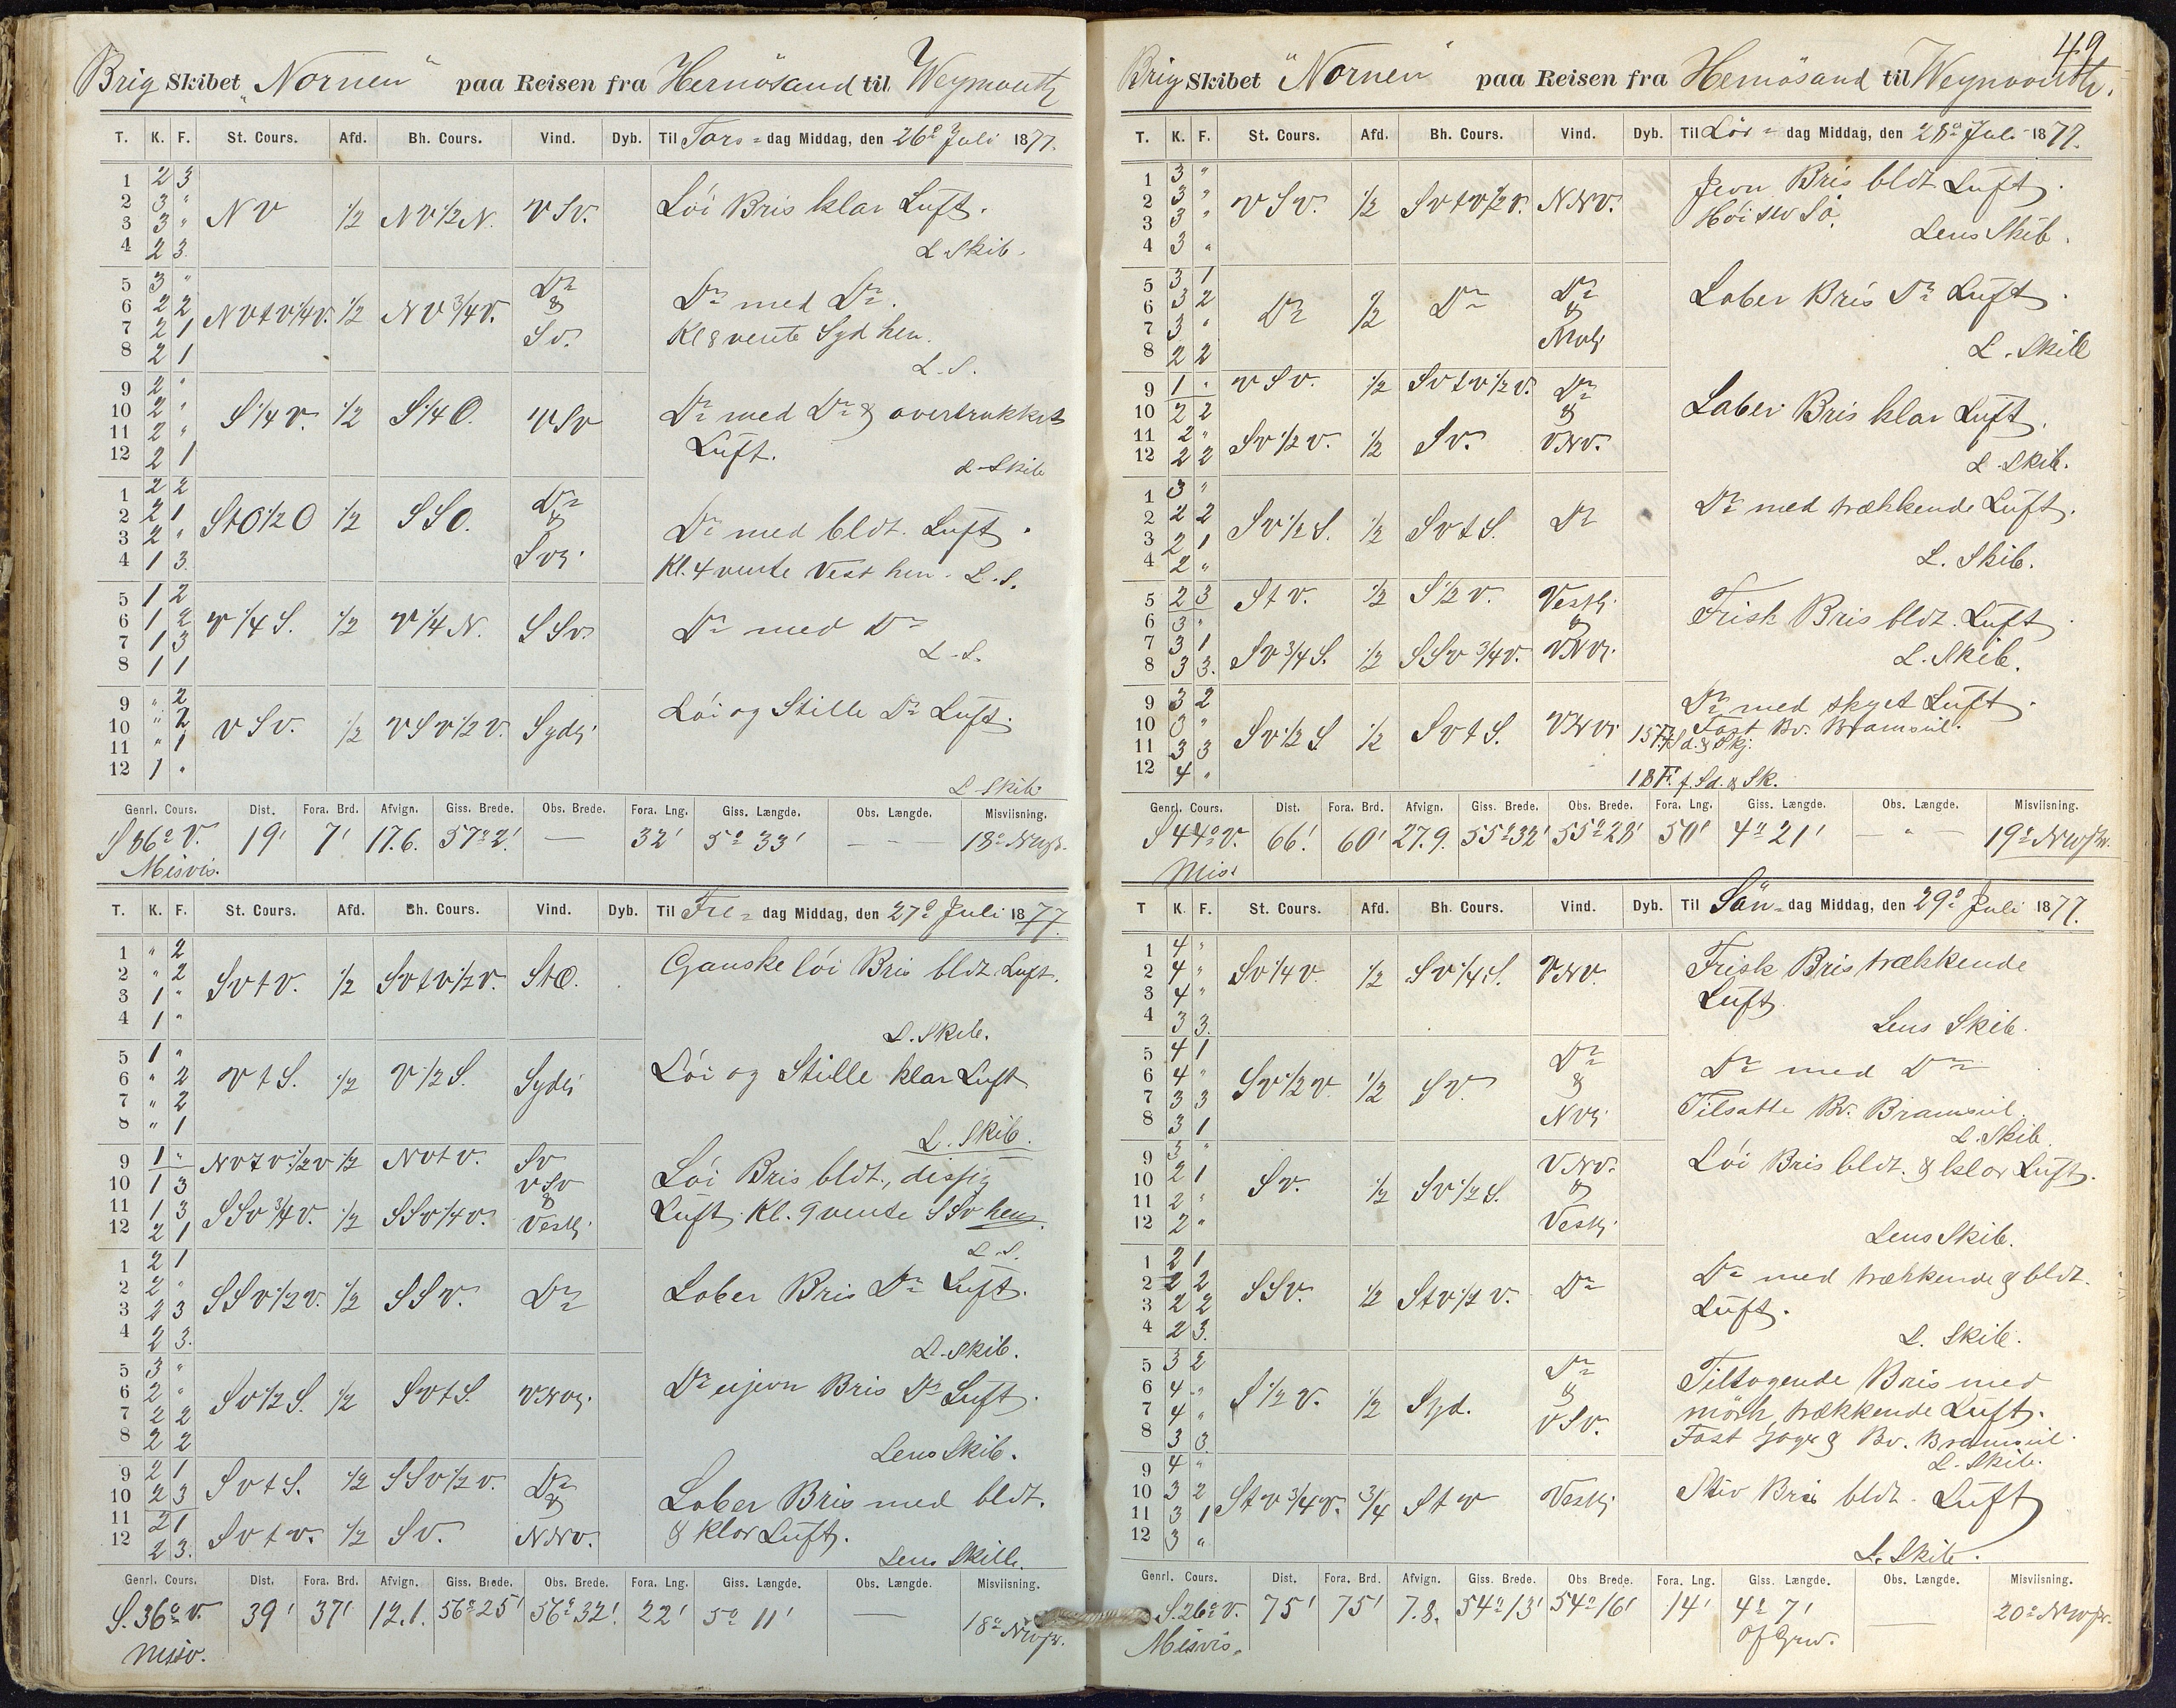 Brig Skibet "Nornen" paa Reisen fra Hernösand til Weymouth
T. K. F. St. Cours. Afd. Bh. Cours. Vind. Dyb. Til Tors-dag Middag, den 26º Juli 1877.
1 2 3
2 3 "
3 3 "
4 2 3
NV 1/2 NV1/2N. VSV. Löi Bris klar Luft.
L Skib.
5 3 "
6 2 2
7 2 1
8 2 1
NVtV1/4V. 1/2 NV3/4V. Do & SV. Do med Do.
Kl 8 vente Syd hen.
L.S.
9 2 "
10 2 "
11 2 "
12 2 1
S1/4V. 1/2 S1/4O. VSV Do med Do & overtrukket
Luft.
L-Skib
1 2 2
2 2 1
3 2 "
4 1 3
StO1/2O 1/2 SSO. Do & SVj. Do med bldt. Luft.
Kl. 4 vente Vest hen. L.S.
5 1 2
6 1 2
7 1 3
8 1 1
V1/4S. 1/2 V1/4N. SSV Do med Do
L-S.
9 " 2
10 " 2
11 " 1
12 1 "
VSV. 1/2 VSV1/2V. Sydlj. Löi og Stille Do Luft.
L Skib
Genrl. Cours. Dist. Fora. Brd. Afvign. Giss. Brede. Obs. Brede. Fora. Lng. Giss. Længde. Obs. Længde. Misviisning.
S 86º V. 19' 7' 17.6. 57º2' — 32' 5º 33' — — — 18º NWstr.
Misvis.
T. K. F. St. Cours. Afd. Bh. Cours. Vind. Dyb. Til Fre-dag Middag, den 27º Juli 1877.
1 " 2
2 " 2
3 1 "
4 1 "
SVtV. 1/2 SVtV1/2V. StO. Ganske löi Bris bldt Luft.
L. Skib.
5 1 "
6 " 2
7 " 2
8 " 1
VtS. 1/2 V1/2S. Sydlj Löi og Stille klar Luft
L. Skib.
9 1 "
10 1 3
11 1 3
12 2 1
NVtV1/2V 1/2 NVtV. SV VSV Löi Bris bldt., dissig
SSV3/4V. 1/2 SSV1/4V. & Vestlj. Luft. Kl. 9 vente SSV hen.
L.S.
1 2 1
2 2 "
3 2 3
4 2 3.
SSV1/2V. 1/2 SSV. Do Laber Bris Do Luft.
L. Skib.
5 3 "
6 2 "
7 2 2
8 2 2
SV1/2S. 1/2 SVtS. VNVlj. Do ujevn Bris Do Luft.
Lens Skib.
9 2 1
10 2 3
11 2 1
12 2 3.
SVtS. 1/2 SSV1/2V. Do & Laber Bris med bldt.
SVtV. 1/2 SV. NNV. & klar Luft.
Lens Skib.
Genrl. Cours. Dist. Fora. Brd. Afvign. Giss. Brede. Obs. Brede. Fora. Lng. Giss. Længde. Obs. Længde. Misviisning.
S. 36º V. 39' 37' 12.1. 56º25' 56º32' 22' 5º 11' — 18º NWstr.
Misv.
49
Brig Skibet "Nornen" paa Reisen fra Hernösand til Weymouth.
T. K. F. St. Cours. Afd. Bh. Cours. Vind. Dyb. Til Lör-dag Middag, den 28º Juli 1877.
1 3 "
2 3 "
3 3 "
4 3 "
VSV. 1/2 SVtV1/2V. NNV. Jevn Bris bldt Luft.
Lens Skib.
5 3 1
6 3 2
7 3 "
8 2 2
Do 1/2 Do Do & NVlj Laber Bris Do Luft.
L. Skib
9 1 "
10 2 2
11 2 "
12 2 2
VSV. 1/2 SVtV1/2V. Do & Laber Bris klar Luft.
SV1/2V. 1/2 SV. VNV.
L. Skib.
1 3 "
2 2 2
3 2 1
4 2 "
SV1/2S. 1/2 SVtS. Do Do med trækkende Luft.
L. Skib.
5 2 3
6 3 "
7 3 1
8 3 3.
StV. 1/2 S1/2V. Vestlj. & Frisk Bris bldt. Luft.
SV3/4S. 1/2 SSV3/4V. VNVj.
L. Skib.
9 3 2
10 3 "
11 3 3
12 4 "
SV1/2S 1/2 SVtS. VNVj Do med skyet Luft.
Fast Bv. Bramseil.
15 F. f. Sd. & Skj.
18 F. f. Sd. & Sk.
Genrl. Cours. Dist. Fora. Brd. Afvign. Giss. Brede. Obs. Brede. Fora. Lng. Giss. Længde. Obs. Længde. Misviisning.
S 44º V. 66' 60' 27.9. 55º32' 55º28' 50' 4º 21' — " — 19º NWstr.
Misv
T K. F. St. Cours. Afd. Bh. Cours. Vind. Dyb. Til Sön-dag Middag, den 29º Juli 1877.
1 4 "
2 4 "
3 4 "
4 3 3.
SV1/4V 1/2 SV1/4S. VNV. Frisk Bris trækkende
Luft.
Lens Skib.
5 4 1
6 4 "
7 3 3
8 3 1
SV1/2V 1/2 SV. Do & NVj. Do med Do
Tilsatte Bv. Bramseil.
L. Skib.
9 3 "
10 2 1
11 2 "
12 2 "
SV. 1/2 SV1/2S. VNV. & Vestlj. Löi Bris bldt. & klar Luft.
Lens Skib.
1 2 1
2 2 2
3 2 2
4 2 3.
SSV. 1/2 StV1/2V. Do Do med trækkende & bldt.
Luft.
L. Skib.
5 3 2
6 4 "
7 4 "
8 3 3
S1/2V. 1/2 Syd. Do & VSV. Tiltagende Bris med
mörk, trækkende Luft.
Fast Jager & Bv. Bramseil.
L. Skib.
9 4 "
10 3 2
11 3 1
12 3 "
StV3/4V. 3/4 StV Vestlj Stiv Bris bldt. Luft
L. Skib.
Genrl. Cours. Dist. Fora. Brd. Afvign. Giss. Brede. Obs. Brede. Fora. Lng. Giss. Længde. Obs. Længde. Misviisning.
S. 26º V. 75' 75' 7.8. 54º13' 54º16' 14' 4º 7' — 20º NWstr.
Misvis. Of Grw.